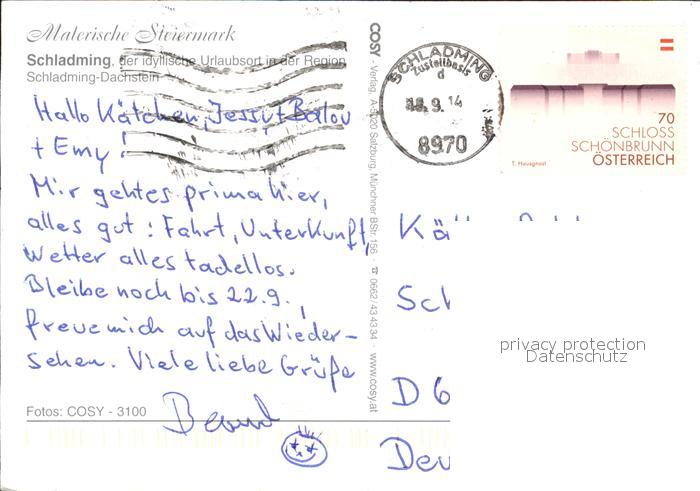 Malerische Steiermark
Schladming, der idyllische Urlaubsort in der Region
Schladming-Dachstein
Hallo Kätchen, Jessy + Balou
+ Emy!
Mir geht es prima hier,
alles gut: Fahrt, Unterkunft,
Wetter alles tadellos.
Bleibe noch bis 22.9.,
freue mich auf das Wieder-
sehen. Viele liebe Grüße
Bernd
Fotos: COSY - 3100
COSY - Verlag, A-5020 Salzburg, Münchner BStr. 156 · ☎ 0662/43 43 34 · www.cosy.at
SCHLADMING
Zustellbasis
d
18.9.14
8970
70
SCHLOSS
SCHÖNBRUNN
ÖSTERREICH
T. Hausgnost
Kä
Sch
privacy protection
Datenschutz
D 6
Deu